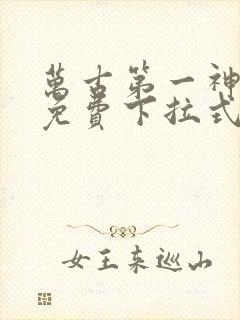 萬古第一神
免費下拉式
女王來巡山